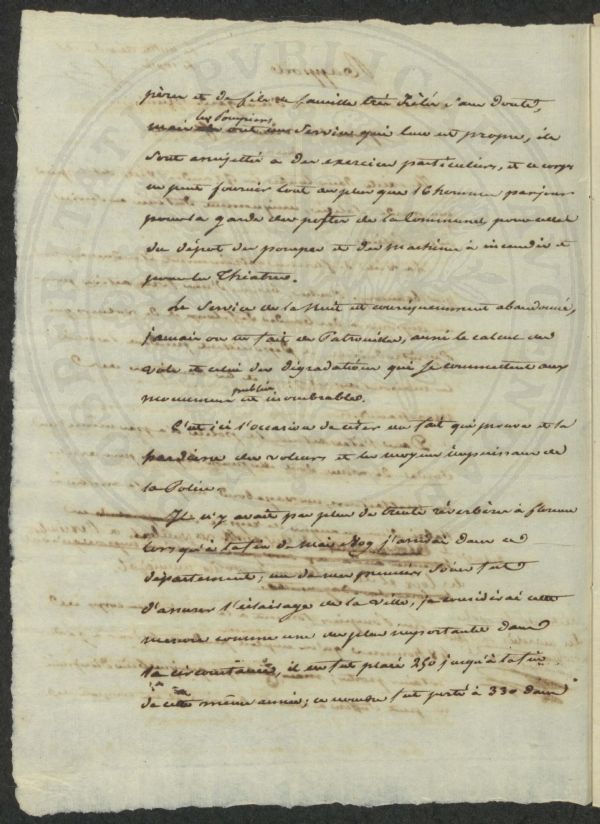 pères et de fils de famille très zélés sans doute,
les Pompiers
mais ils ont un service qui leur est propre, ils
sont assujettis à des exercices particuliers, et ce corps
ne peut fournir tout au plus que 16 hommes par jour
pour la garde du poste de la Commune, pour celle
du dépot des pompes et des machines à incendie et
pour les Théatres.
Le service de la Nuit est conséquemment abandonné,
jamais on ne fait de Patrouilles, aussi le calcul des
vols et celui des dégradations qui se commettent aux
publics
monumens est inombrables.
C'est ici l'occasion de citer un fait qui prouve et la
hardiesse des voleurs et les moyens impuissans de
la Police.
Il n'y avait pas plus de trente réverbères à florence
lorsqu'à la fin de Mai 1809 j'arrivai dans ce
département; un de mes premiers soins fut
d'assurer l'éclairage de la Ville, je considérai cette
mesure comme une des plus importantes dans
la circonstance, il en fut placé 250 jusqu'à la fin
de cette même année; ce nombre fut porté à 330 dans